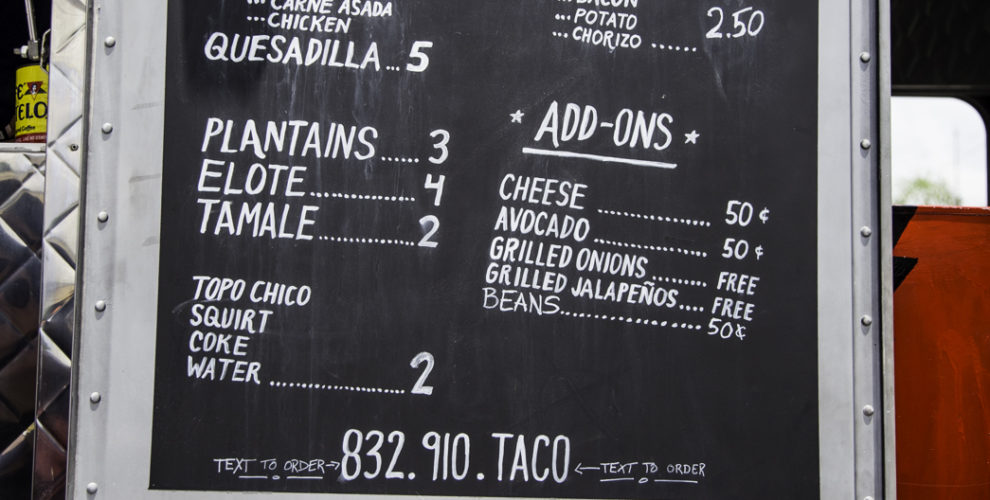 ... CARNE ASADA
... CHICKEN
QUESADILLA ... 5
PLANTAINS ...... 3
ELOTE ................ 4
TAMALE ............... 2
TOPO CHICO
SQUIRT
COKE
WATER ...................... 2
... BACON
... POTATO 2.50
... CHORIZO ......
* ADD-ONS *
CHEESE .................. 50 ¢
AVOCADO .................. 50 ¢
GRILLED ONIONS ......... FREE
GRILLED JALAPEÑOS.... FREE
BEANS...................... 50¢
TEXT TO ORDER → 832.910.TACO ← TEXT TO ORDER